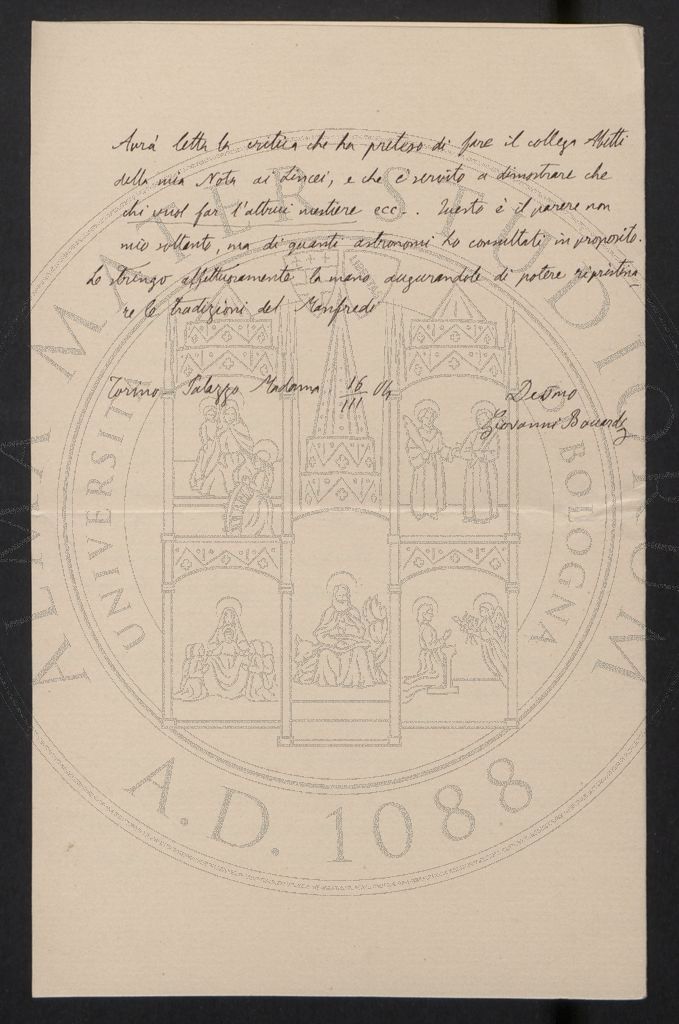 Avrà letta la critica che ha preteso di fare il collega
della mia Nota ai Lincei, e che è servito a dimostrare che
chi vuol far l'altrui mestiere ecc.. Questo è il parere non
mio soltanto, ma di quanti astronomi ho consultati in proposito.
Le stringo affettuosamente la mano augurandole di potere ripristina-
re le tradizioni del Manfredi
Torino Palazzo Madama 16/III 04
Devmo
Giovanni Boccardi
ALMA MATER STUDIORUM
UNIVERSITÀ
BOLOGNA
LIBERTAS
A.D. 1088